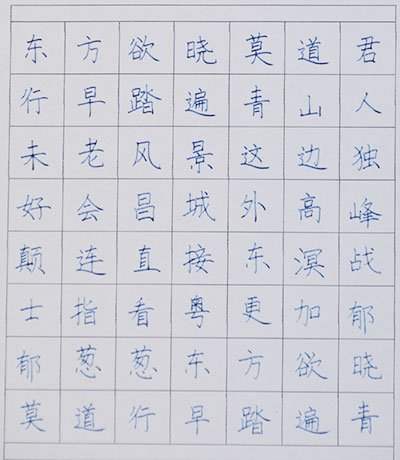 东方欲晓莫道君
行早踏遍青山人
未老风景这边独
好会昌城外高峰
颠连直接东溟战
士指看粤更加郁
郁葱葱东方欲晓
莫道行早踏遍青